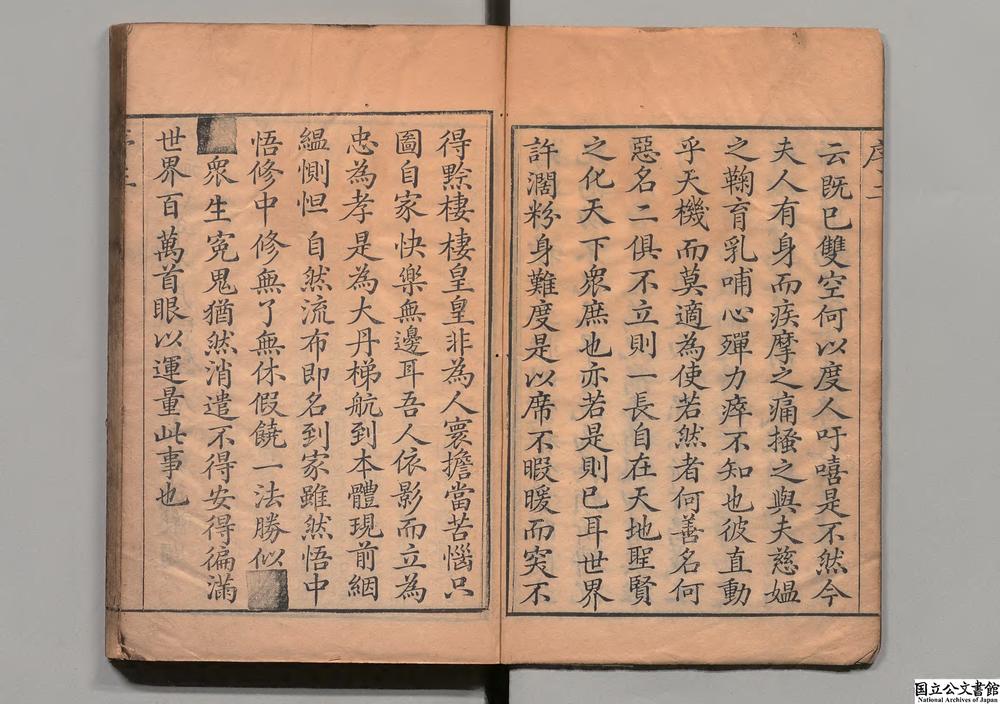 序二
云既已雙空何以度人吁嘻是不然今
夫人有身而疾摩之痛搔之與夫慈媼
之鞠育乳哺心殫力瘁不知也彼直動
乎天機而莫適為使若然者何善名何
惡名二俱不立則一長自在天地聖賢
之化天下衆庶也亦若是則已耳世界
許濶粉身難度是以席不暇暖而突不
得黔棲棲皇皇非為人寰擔當苦惱只
圖自家快樂無邊耳吾人依影而立為
忠為孝是為大丹梯航到本體現前絪
緼惻怛自然流布即名到家雖然悟中
悟修中修無了無休假饒一法勝似
衆生寃鬼猶然消遣不得安得徧滿
世界百萬首眼以運量此事也
国立公文書館
National Archives of Japan